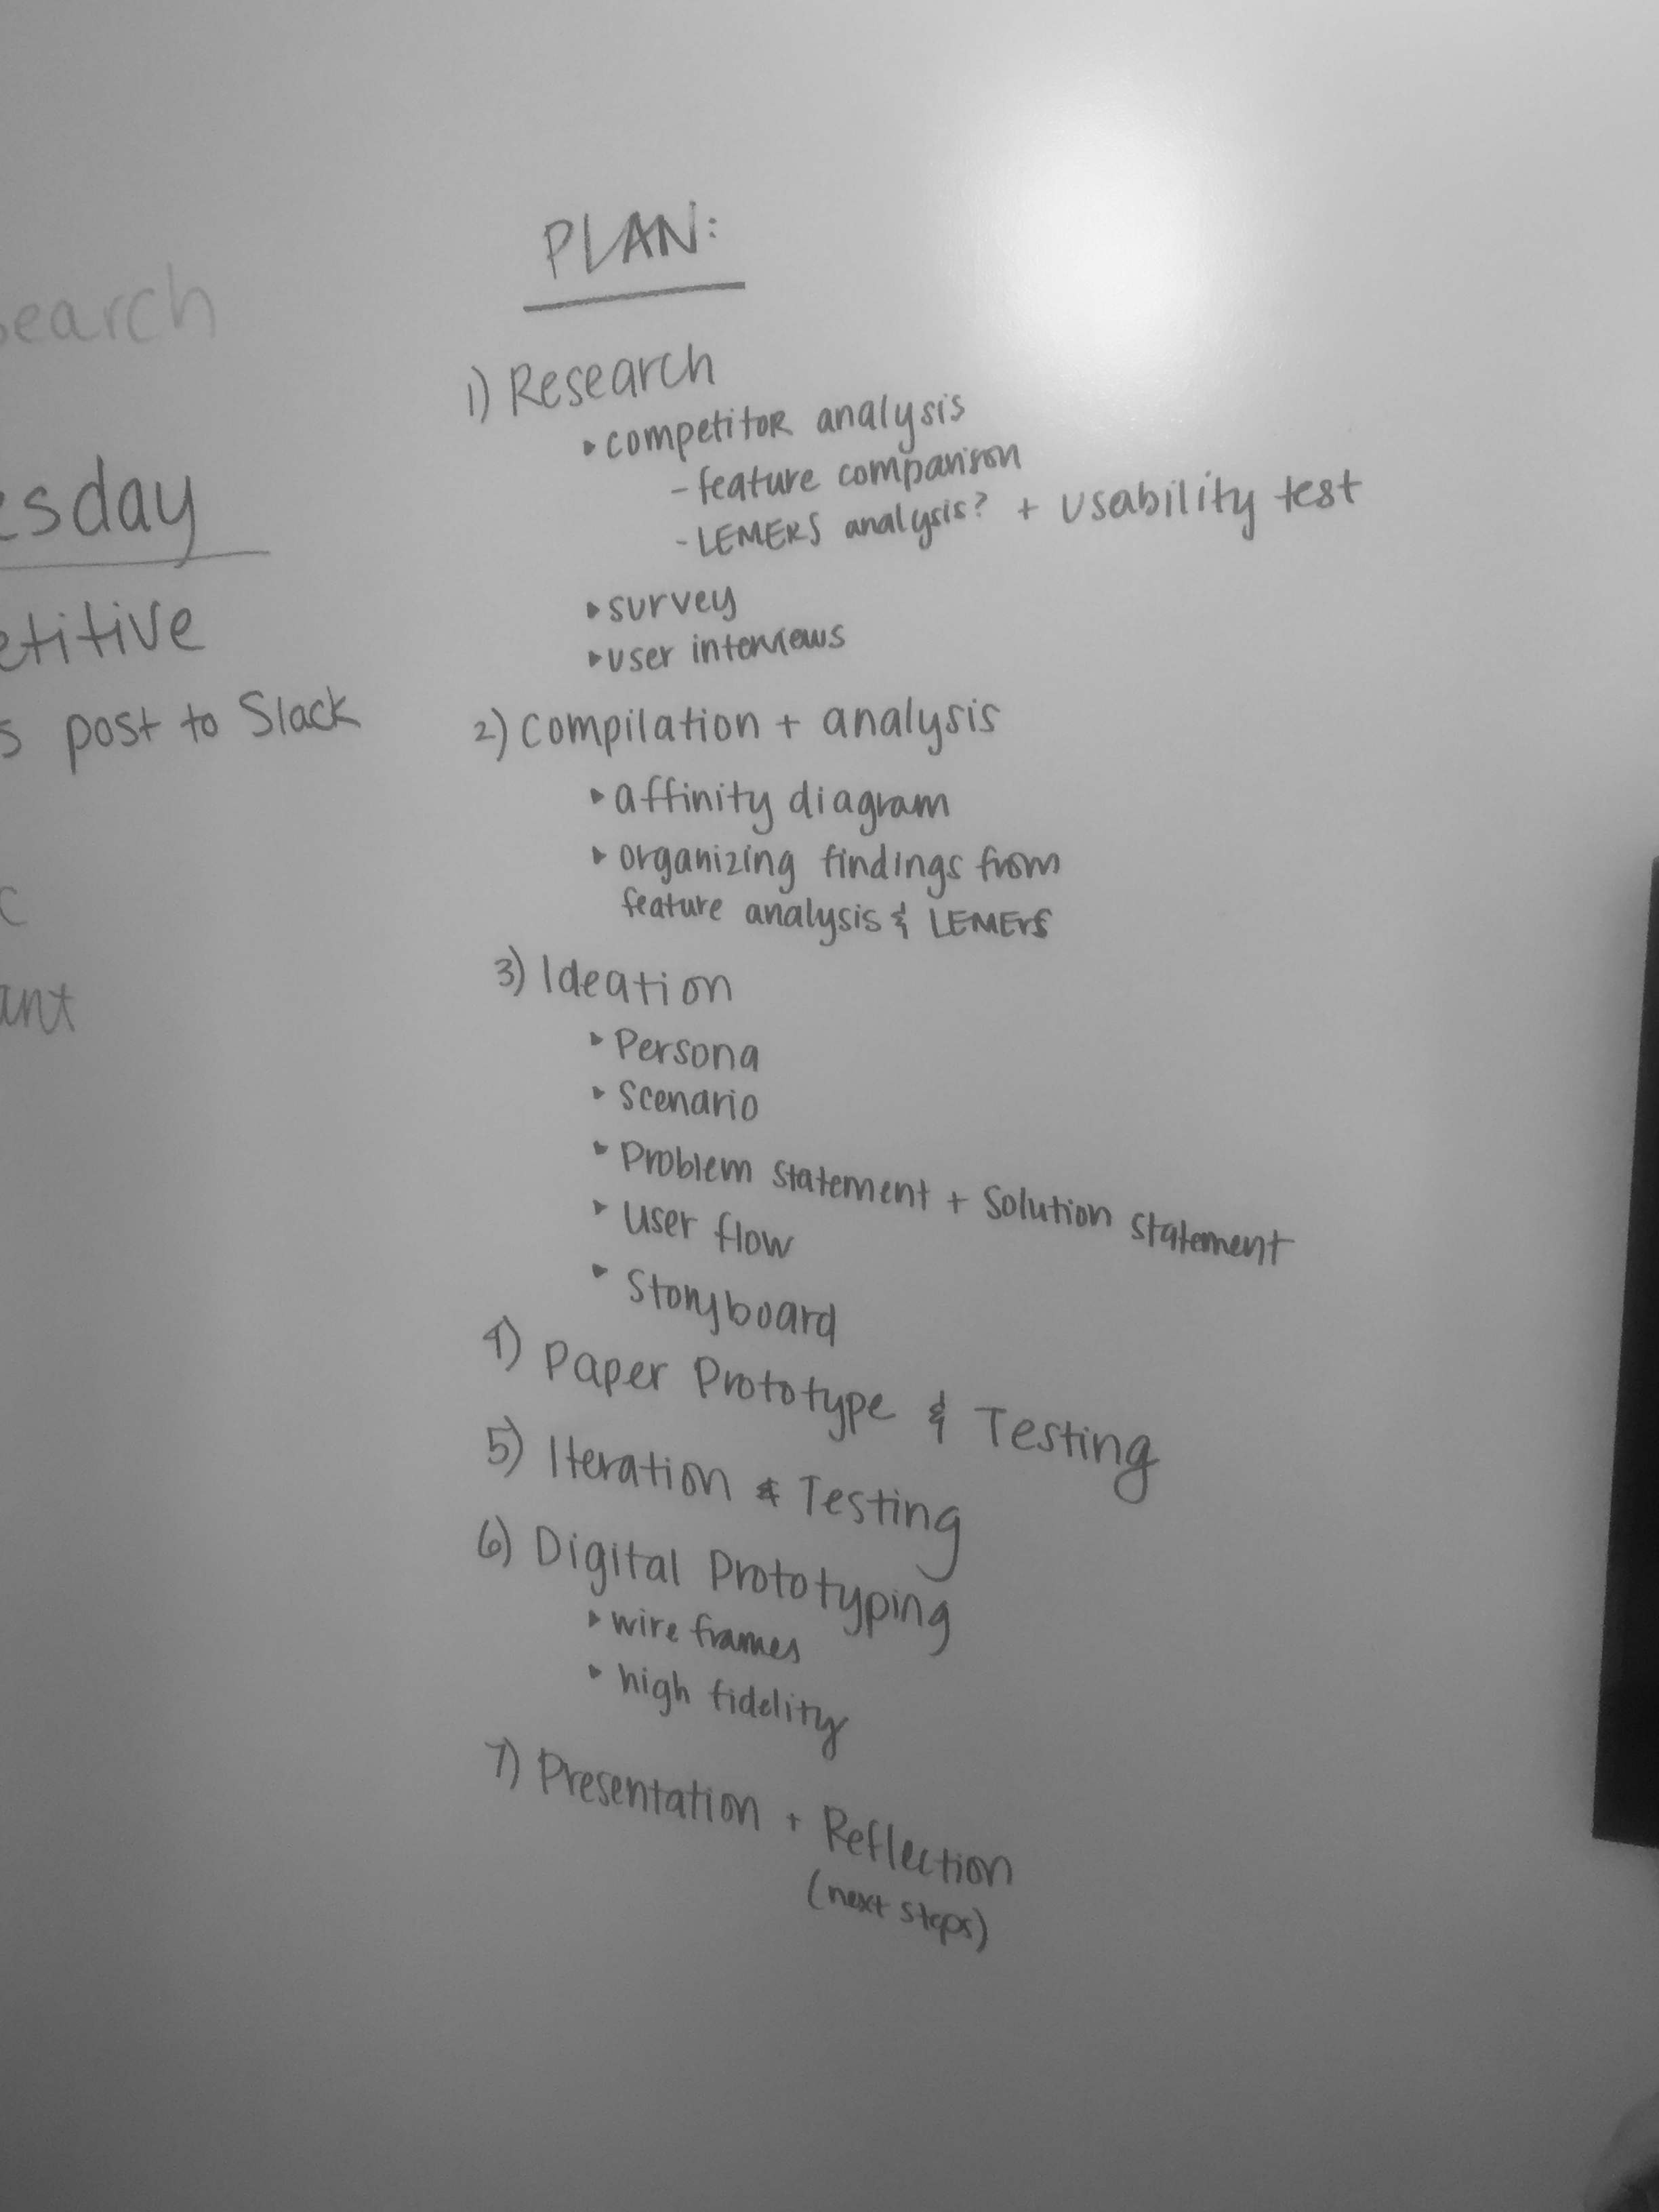 search
esday
etitive
s post to Slack
c
ant
PLAN:
1) Research
▸ competitor analysis
- feature comparison
- LEMERS analysis? + usability test
▸ survey
▸ user interviews
2) compilation + analysis
▸ affinity diagram
▸ organizing findings from
feature analysis & LEMErS
3) Ideation
▸ Persona
▸ Scenario
▸ Problem statement + Solution statement
▸ User flow
▸ Storyboard
4) Paper Prototype & Testing
5) Iteration & Testing
6) Digital Prototyping
▸ wire frames
▸ high fidelity
7) Presentation + Reflection
(next steps)